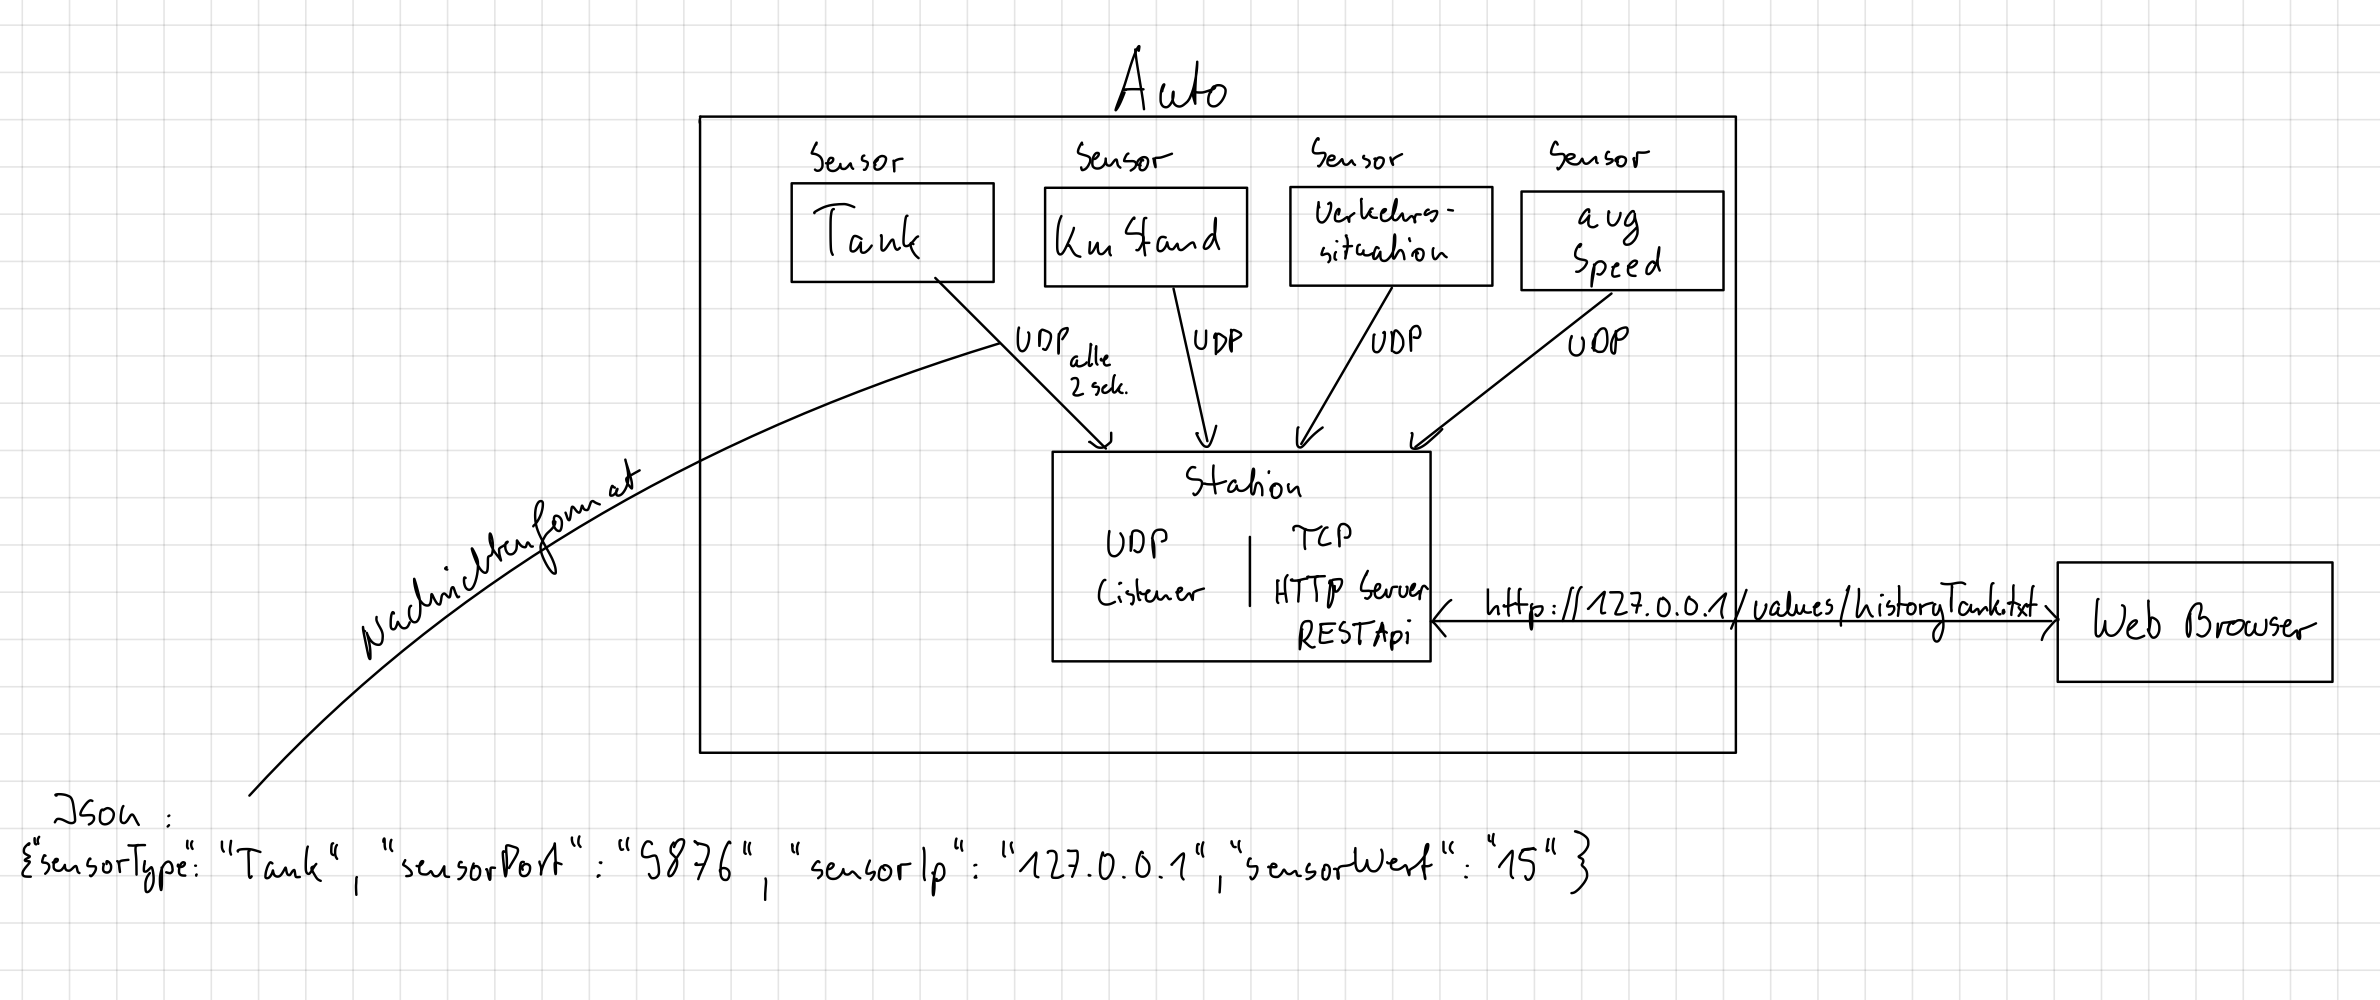 Auto
Sensor
Tank
Sensor
Km Stand
Sensor
Verkehrs-
situation
Sensor
avg
Speed
UDP
alle
2 sek.
UDP
UDP
UDP
Station
UDP
Listener
TCP
HTTP Server
REST Api
http://127.0.0.1/values/historyTank.txt
Web Browser
Nachrichtenformat
Json :
{"sensorType": "Tank", "sensorPort" : "9876", "sensorIp" : "127.0.0.1", "sensorWert" : "15" }